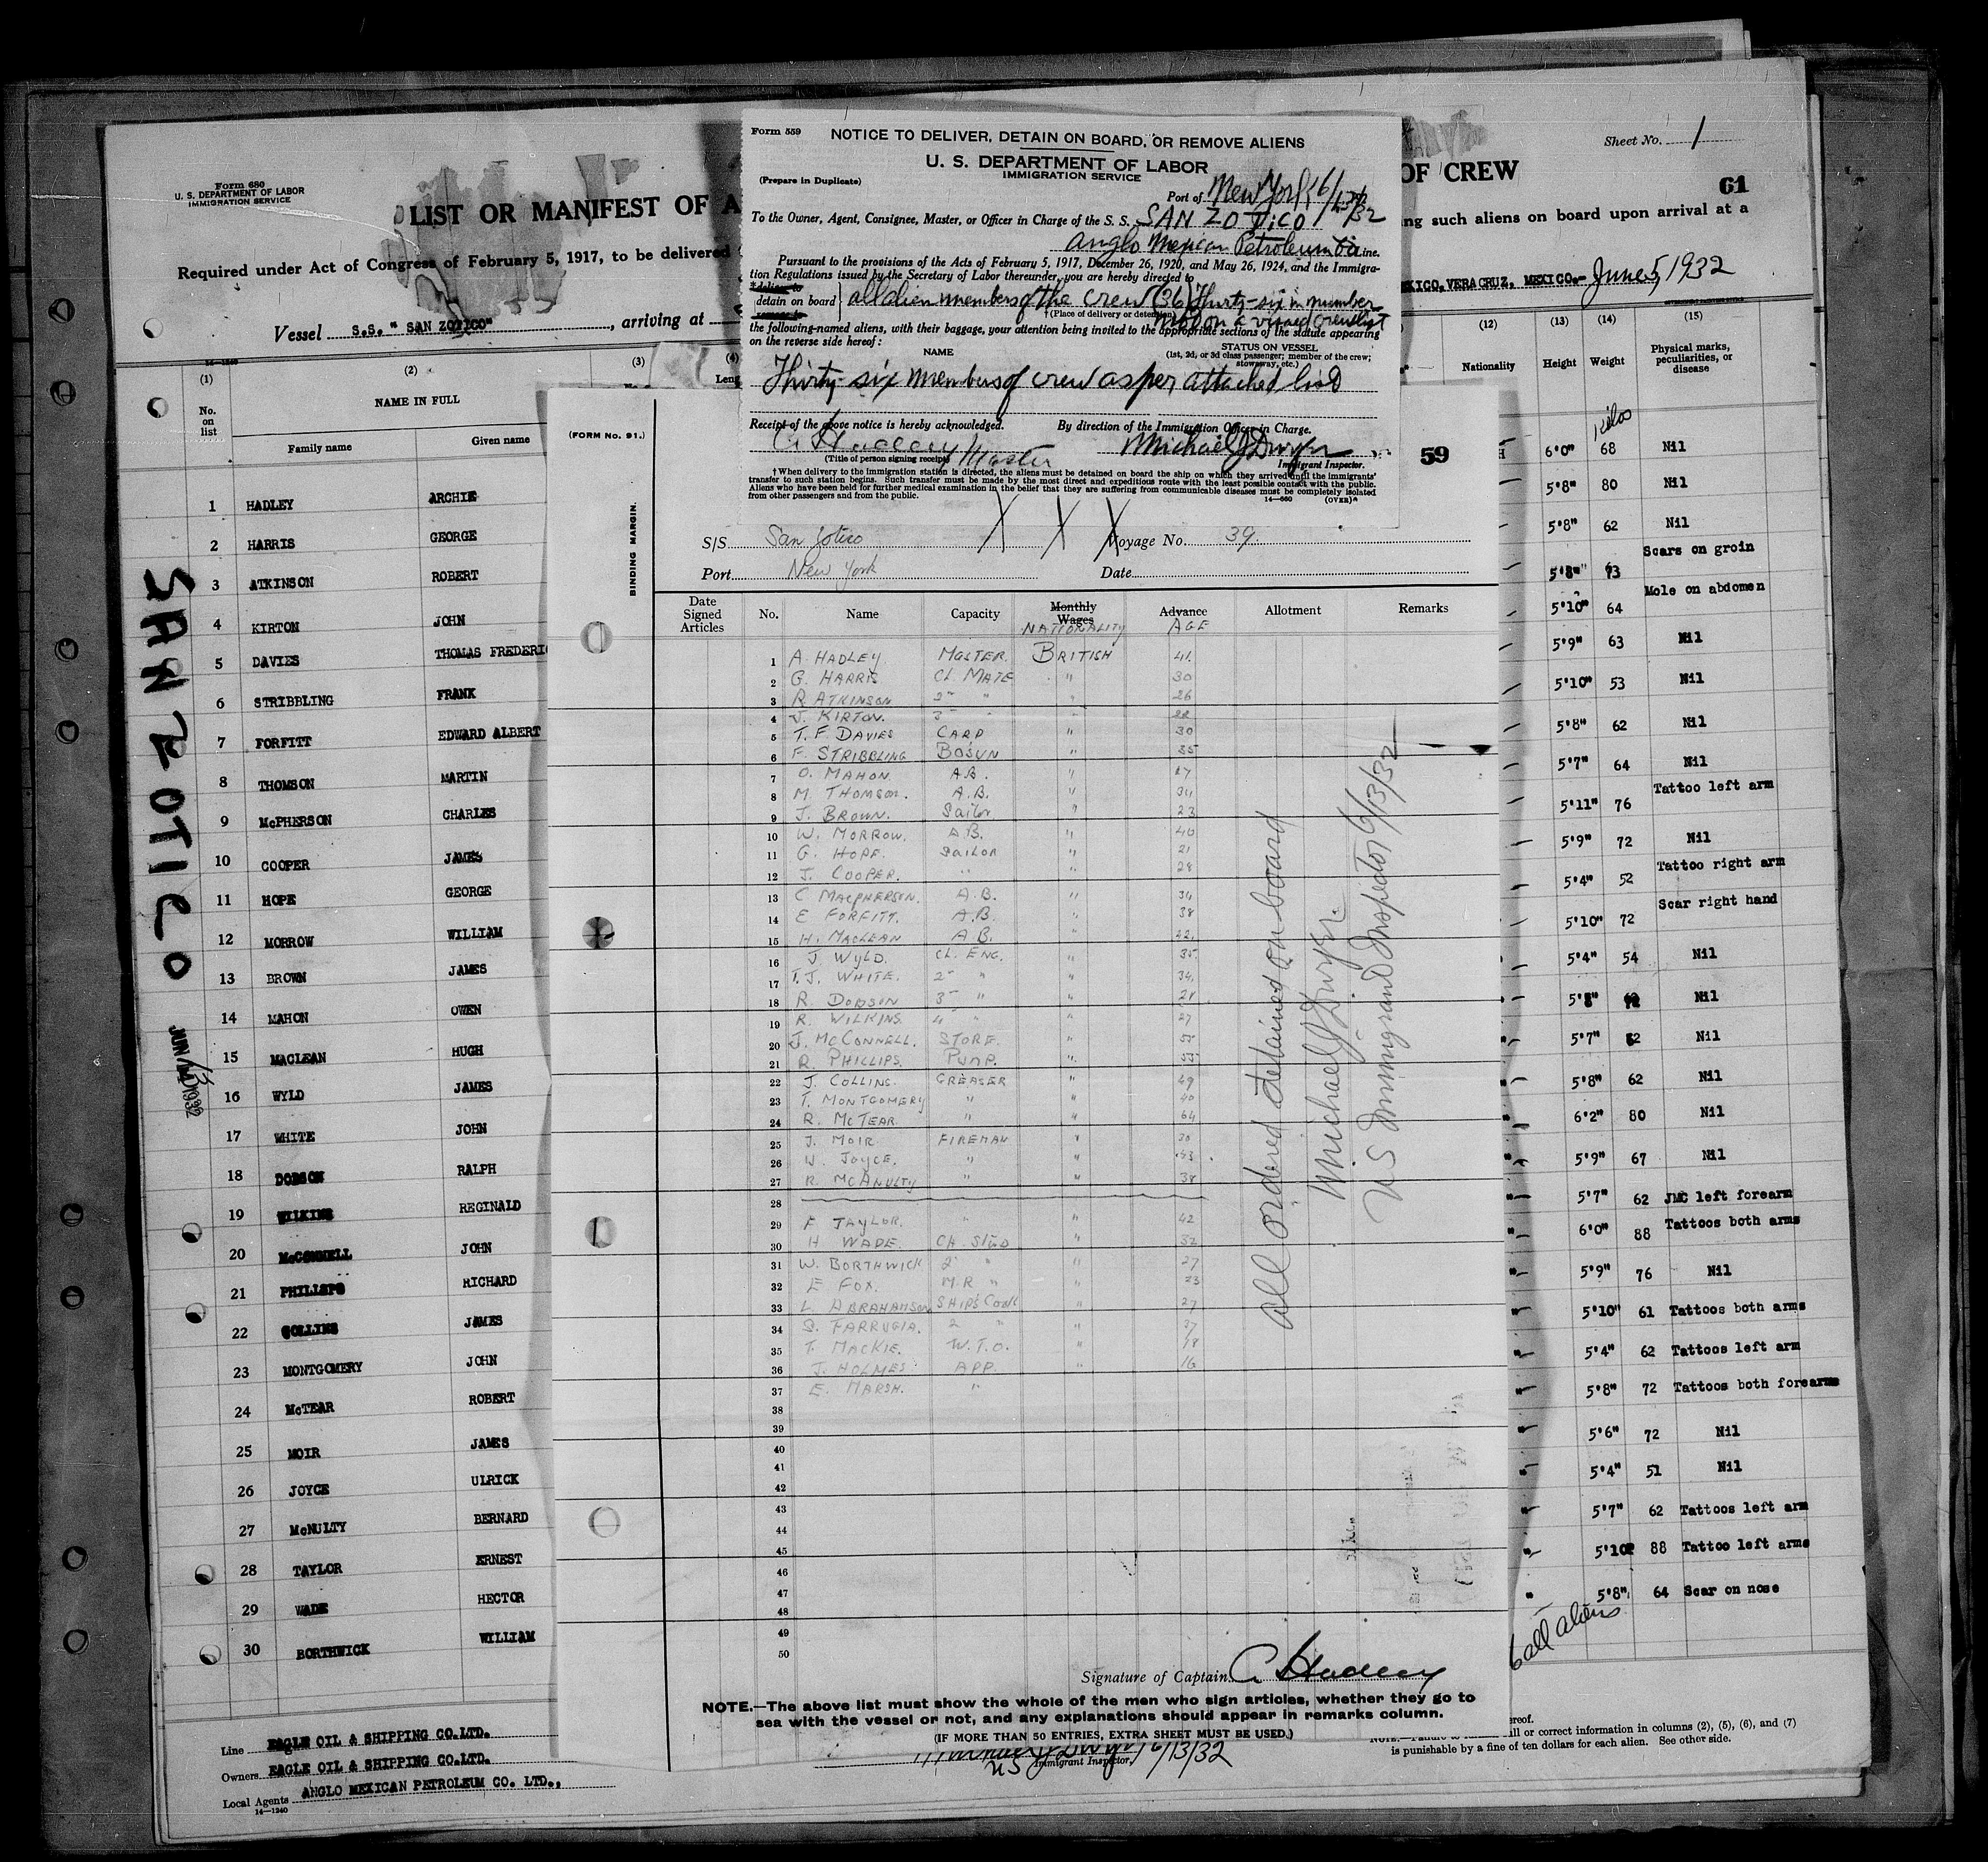 Form 680
U. S. DEPARTMENT OF LABOR
IMMIGRATION SERVICE
LIST OR MANIFEST OF A
Required under Act of Congress of February 5, 1917, to be delivered
Vessel S.S." SAN ZOTICO" , arriving at
14—1240
(1) (2) (3) (4)
No. on list
NAME IN FULL
Family name Given name
Leng
1 HADLEY ARCHIE
2 HARRIS GEORGE
3 ATKINSON ROBERT
4 KIRTON JOHN
5 DAVIES THOMAS FREDERI
6 STRIBBLING FRANK
7 FORFITT EDWARD ALBERT
8 THOMSON MARTIN
9 McPHERSON CHARLES
10 COOPER JAMES
11 HOPE GEORGE
12 MORROW WILLIAM
13 BROWN JAMES
14 MAHON OWEN
15 MACLEAN HUGH
16 WYLD JAMES
17 WHITE JOHN
18 DOBSON RALPH
19 WILKINS REGINALD
20 McCONNELL JOHN
21 PHILLIPS RICHARD
22 COLLINS JAMES
23 MONTGOMERY JOHN
24 McTEAR ROBERT
25 MOIR JAMES
26 JOYCE ULRICK
27 McNULTY BERNARD
28 TAYLOR ERNEST
29 WADE HECTOR
30 BORTHWICK WILLIAM
Line EAGLE OIL & SHIPPING CO.LTD.
Owners EAGLE OIL & SHIPPING CO.LTD.
Local Agents ANGLO MEXICAN PETROLEUM CO. LTD.,
14—1240
SAN ZOTICO
Form 559
NOTICE TO DELIVER, DETAIN ON BOARD, OR REMOVE ALIENS
U. S. DEPARTMENT OF LABOR
IMMIGRATION SERVICE
(Prepare in Duplicate)
Port of New York 6/13/32
To the Owner, Agent, Consignee, Master, or Officer in Charge of the S. S. SAN ZOTICO
Anglo Mexican Petroleum Co Line.
Pursuant to the provisions of the Acts of February 5, 1917, December 26, 1920, and May 26, 1924, and the Immigra-
tion Regulations issued by the Secretary of Labor thereunder, you are hereby directed to
*deliver to
detain on board
remove to
all alien members of the crew (36) Thirty-six in number
†(Place of delivery or detention)
not on a visaed crewlist
the following-named aliens, with their baggage, your attention being invited to the appropriate sections of the statute appearing
on the reverse side hereof:
NAME
STATUS ON VESSEL
(1st, 2d, or 3d class passenger; member of the crew;
stowaway, etc.)
Thirty-six members of crew as per attached list
Receipt of the above notice is hereby acknowledged. By direction of the Immigration Officer in Charge.
A Hadley Master
Michael J Dwyer
(Title of person signing receipt)
Immigrant Inspector.
†When delivery to the immigration station is directed, the aliens must be detained on board the ship on which they arrived until the immigrants'
transfer to such station begins. Such transfer must be made by the most direct and expeditious route with the least possible contact with the public.
Aliens who have been held for further medical examination in the belief that they are suffering from communicable diseases must be completely isolated
from other passengers and from the public. 14—660 (OVER)
59
(FORM No. 91.)
BINDING MARGIN.
S/S San Zotico Voyage No. 39
Port New York Date
Date Signed Articles No. Name Capacity Monthly Wages Advance Allotment Remarks
NATIONALITY AGE
1 A. HADLEY MASTER. BRITISH 41
2 G. HARRIS CH. MATE " 30
3 R ATKINSON 2" " " 26
4 J. KIRTON. 3" " " 22
5 T. F. DAVIES CARP " 30
6 F STRIBBLING BOSUN " 35
7 O. MAHON A.B. " 27
8 M THOMSON. A.B. " 34
9 J. BROWN. Sailor " 23
10 W. MORROW. A.B. " 40
11 G. HOPE. SAILOR " 21
12 J. COOPER. " " 28
13 C MACPHERSON. A.B. " 34
14 E FORFITT. A.B. " 38
15 H. MACLEAN A B. " 42
16 J WYLD. CH. ENG. " 35
17 T.J. WHITE. 2" " " 34
18 R. DOBSON 3" " " 28
19 R. WILKINS. 4" " " 27
20 J. MCCONNELL. STORE.
21 R. PHILLIPS. PUMP.
22 J. COLLINS. GREASER " 49
23 T. MONTGOMERY " " 40
24 R. MCTEAR " " 64
25 J. MOIR FIREMAN " 30
26 W. JOYCE. " " 43
27 R. MCANULTY " " 38
28
29 F TAYLOR. " " 42
30 H WADE. CH. STED " 32
31 W. BORTHWICK 2 " " 27
32 E FOX. M.R " " 23
33 L. ABRAHAMSON SHIPS COOK " 27
34 S. FARRUGIA. 2 " " 37
35 T. MACKIE. W.T.O. " 18
36 J. HOLMES APP. " 16
37 E. MARSH. "
38
39
40
41
42
43
44
45
46
47
48
49
50
All ordered detained on board
Michael J Dwyer.
US Immigrant Inspector 6/13/32
Signature of Captain A Hadley
NOTE.—The above list must show the whole of the men who sign articles, whether they go to
sea with the vessel or not, and any explanations should appear in remarks column.
(IF MORE THAN 50 ENTRIES, EXTRA SHEET MUST BE USED.)
Michael J Dwyer 6/13/32
US Immigrant Inspector.
Sheet No. 1
OF CREW
61
ng such aliens on board upon arrival at a
EXICO, VERACRUZ, MEXICO.- June 5, 1932
(12) (13) (14) (15)
Nationality Height Weight Physical marks, peculiarities, or disease
Kilos
6'0" 68 Nil
5'8" 80 Nil
5'8" 62 Nil
5'8" 73 Scars on groin
5'10" 64 Mole on abdomen
5'9" 63 Nil
5'10" 53 Nil
5'8" 62 Nil
5'7" 64 Nil
5'11" 76 Tattoo left arm
5'9" 72 Nil
5'4" 52 Tattoo right arm
5'10" 72 Scar right hand
5'4" 54 Nil
5'8" Nil
5'7" 62 Nil
5'8" 62 Nil
6'2" 80 Nil
5'9" 67 Nil
5'7" 62 JMC left forearm
6'0" 88 Tattoos both arms
5'9" 76 Nil
5'10" 61 Tattoos both arms
5'4" 62 Tattoos left arm
5'8" 72 Tattoos both forearms
5'6" 72 Nil
5'4" 51 Nil
5'7" 62 Tattoos left arm
5'10" 88 Tattoo left arms
5'8" 64 Scar on nose
all aliens
ereof.
ill or correct information in columns (2), (5), (6), and (7)
is punishable by a fine of ten dollars for each alien. See other side.